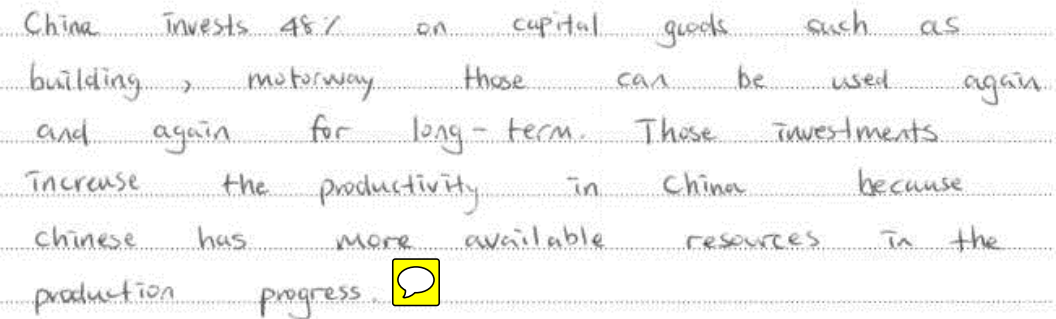 China invests 48% on capital goods such as
building, motorway those can be used again
and again for long-term. Those investments
increase the productivity in China because
chinese has more available resources in the
production progress.